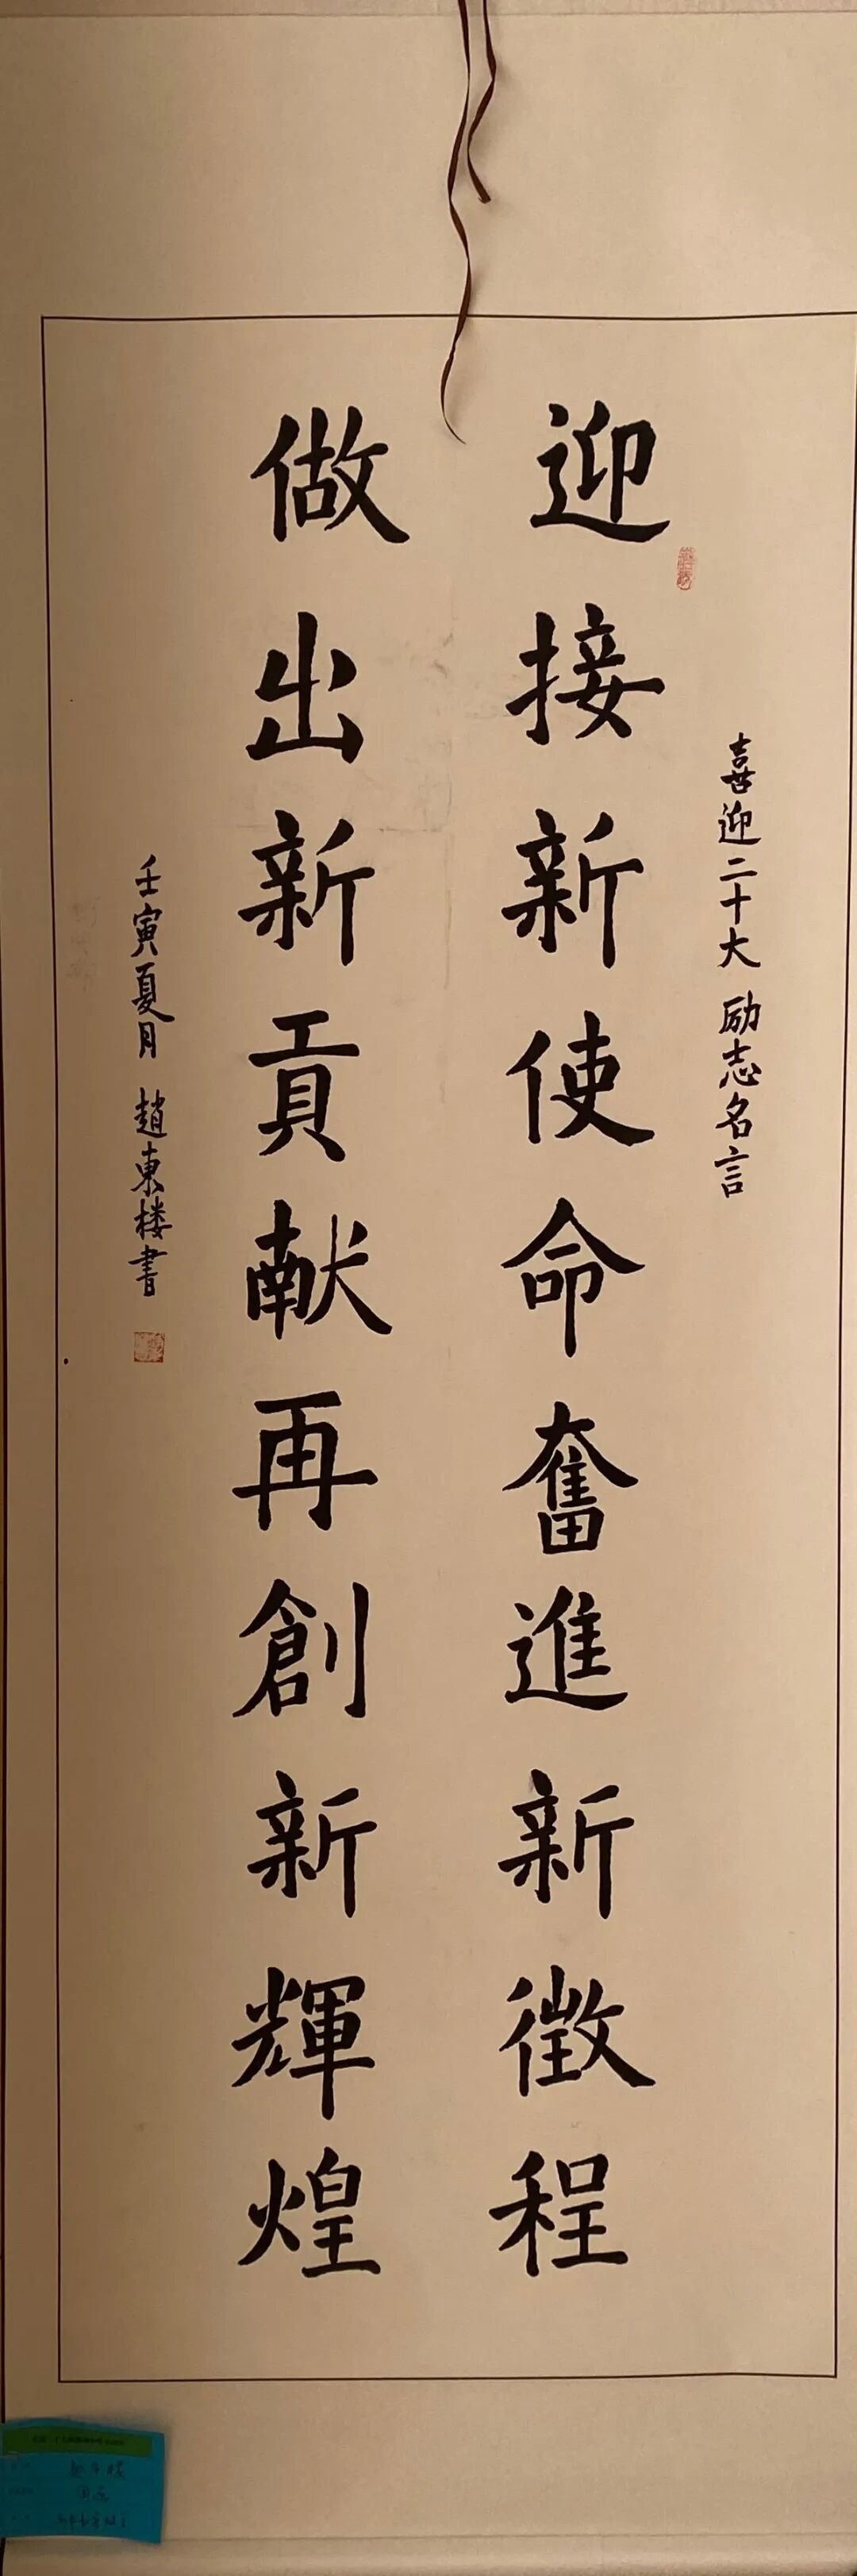 喜迎二十大 励志名言
迎接新使命奮進新徵程
做出新貢献再創新輝煌
壬寅夏月 趙東楼書